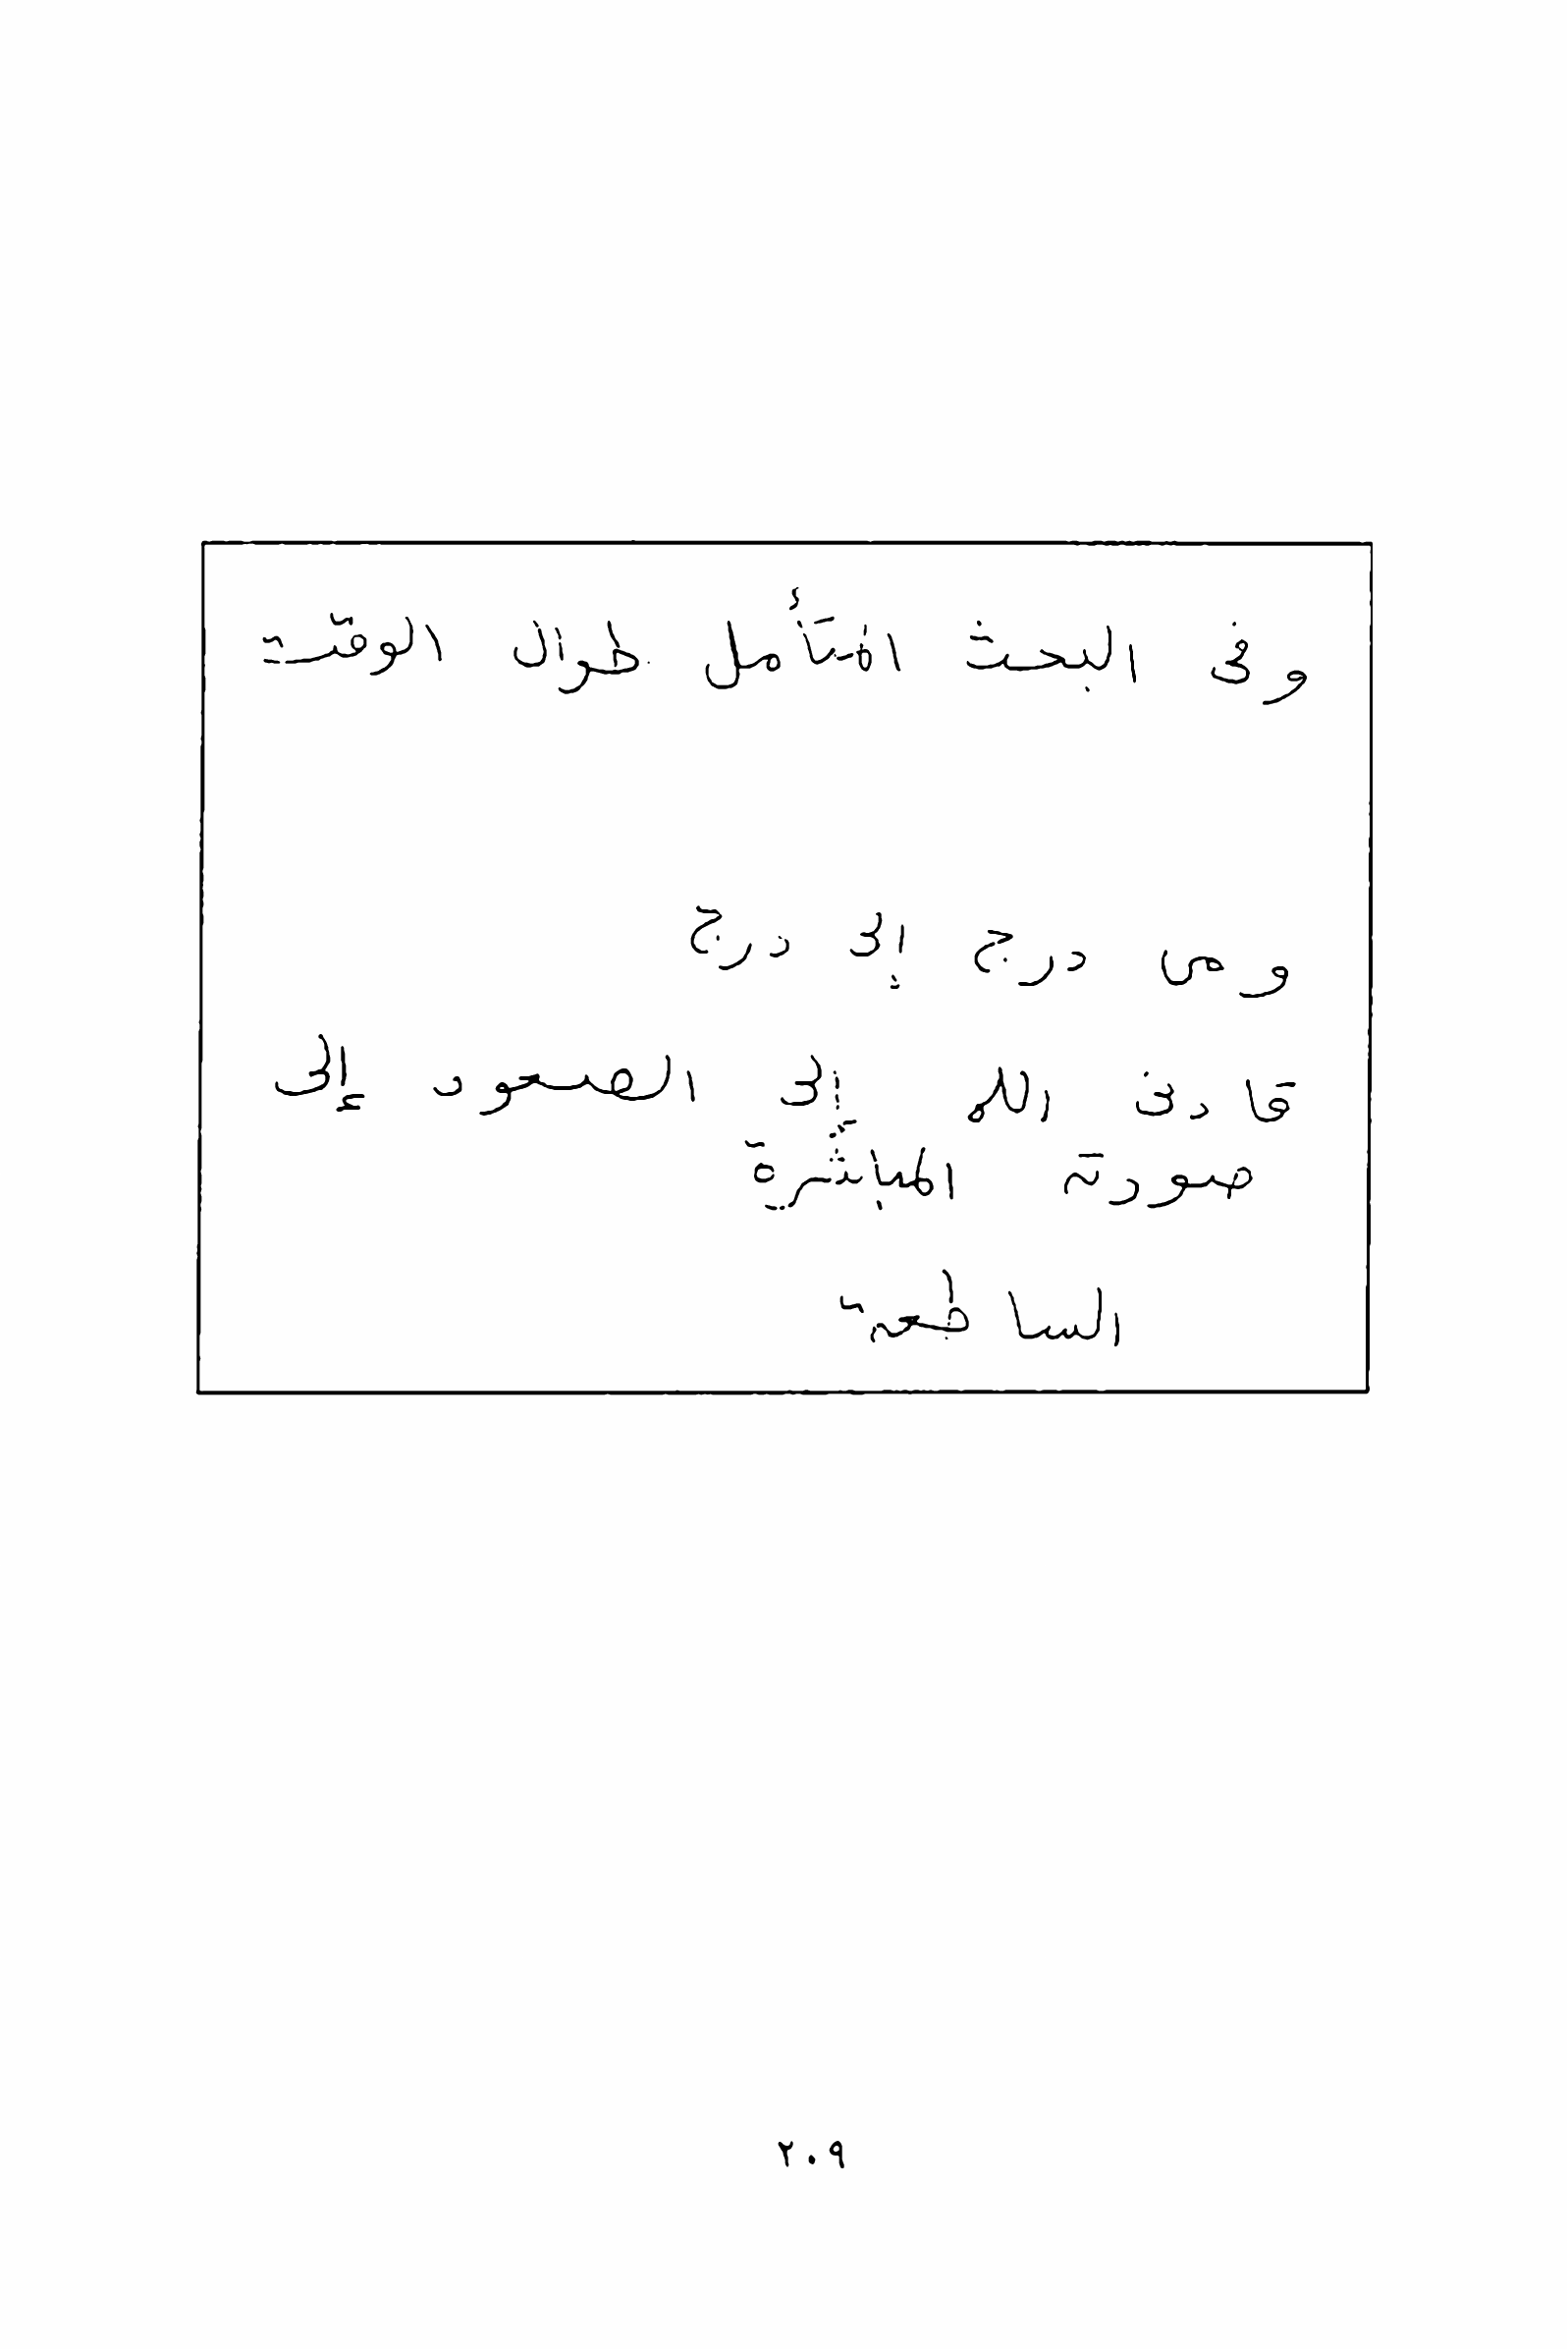 وفى البحث المتأمل طوال الوقت
ومن درج إلى درج
قادنى الله إلى الصعود إلى
صورته المباشرة
الساطعة
٢٠٩